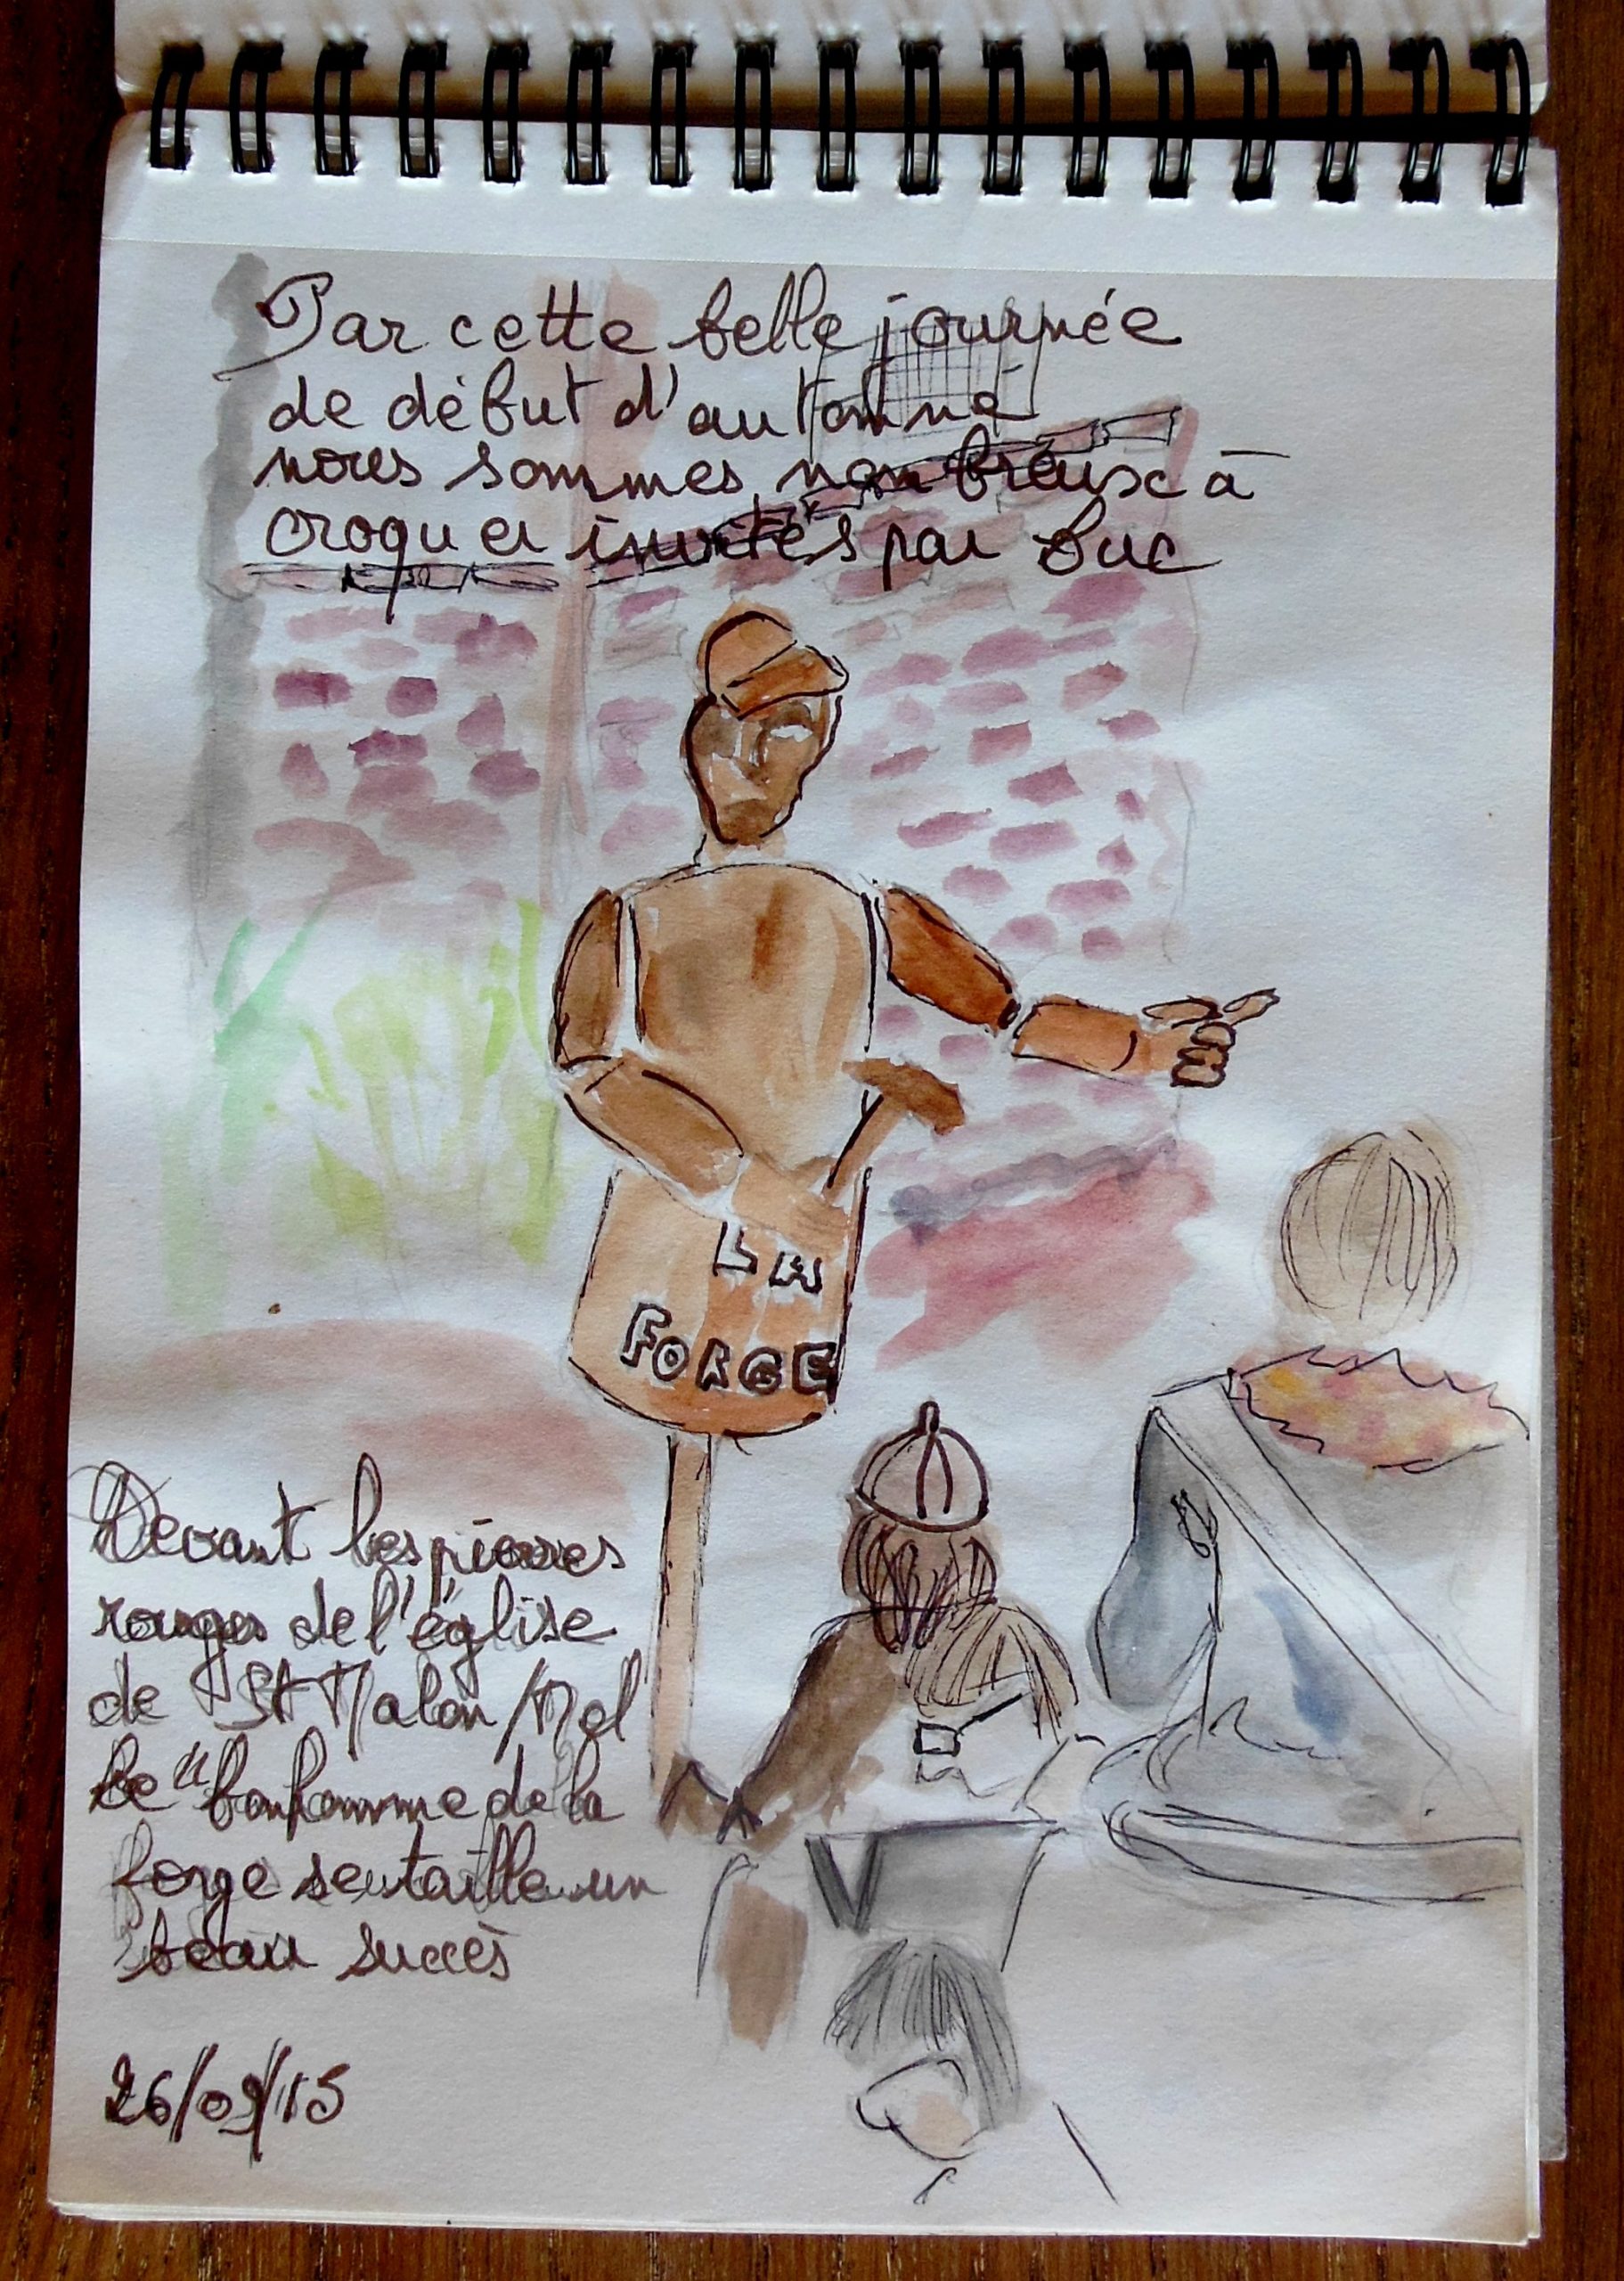 Par cette belle journée
de début d'automne
nous sommes nombreux à
croquer invités par Luc
LA
FORGE
Devant les pierres
rouges de l'église
de St Malon/Mel
Le "bonhomme de la
forge se taille un
beau succès
26/09/15